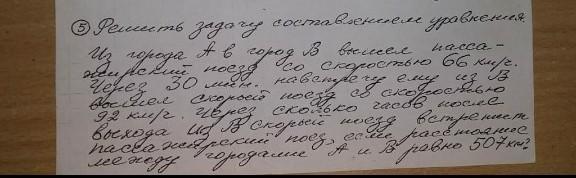 ⑤ Решить задачу составлением уравнения.
Из города А в город В вышел пасса-
жирский поезд со скоростью 66 км/ч.
Через 30 мин. навстречу ему из В
вышел скорый поезд со скоростью
92 км/ч. Через сколько часов после
выхода из В скорый поезд встретит
пассажирский поезд, если расстояние
между городами А и В равно 507 км?